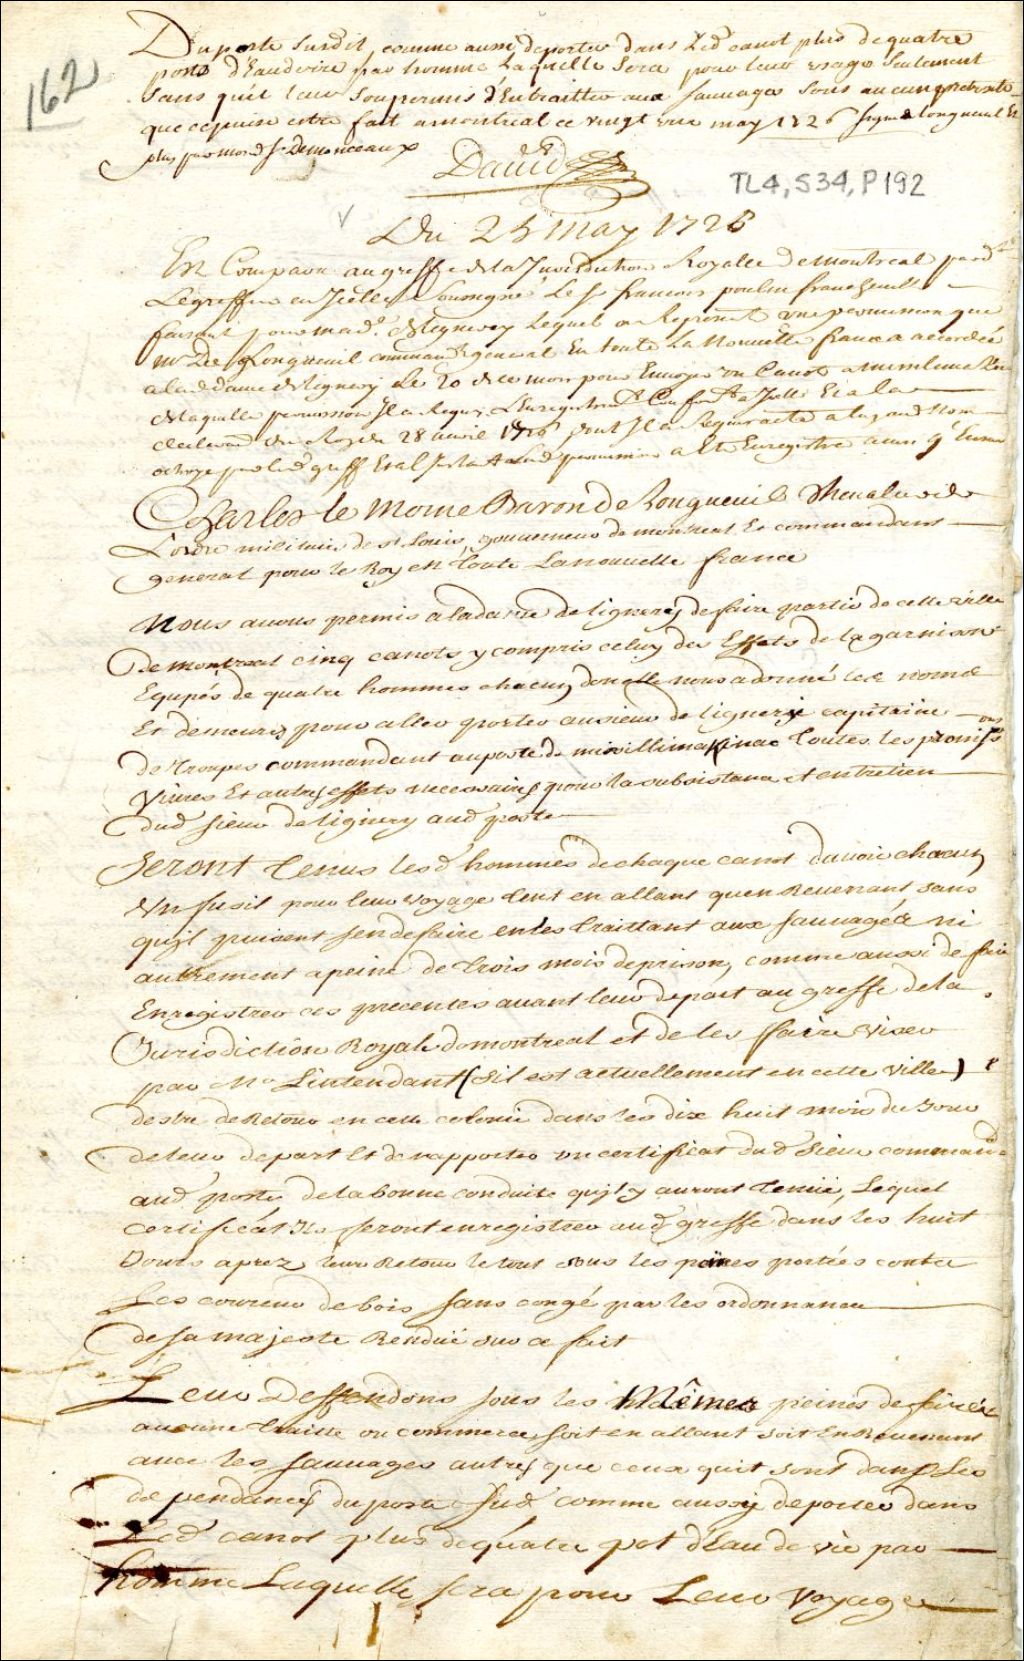 162
Du poste Susdit, comme aussi deporter dans Led canot plus de quatre
pots d'Eaudevie par homme Laquelle Sera pour leur usage Seulement
Sans qu'il leur Soit permis d'En traitter aux Sauvages Sous aucun pretexte
que ce puisse estre fait a montreal ce vingt may 1726 signé Longueuil Et
plus par mond Sr. Demonceaux
David
TL4, S34, P192
Du 25 may 1726
Est Comparu au greffe de la Jurisdiction Royalle de montreal pard
Le greffier en Icelle Soussigné Le Sr francois poulin francheville
faisant pour mad.e de Lignery Lequel a Representé une permission que
Mr De Longueuil commandt general En toute La Nouvelle france a accordée
a lad dame de Lignery Le 20 de ce mois pour Envoyer un Canot a
de laquelle permission Il a Requis L'Enregistrement Conformt a Icelle Et a la
declaration du Roy du 28 avril 1726 dont Il a Requis acte a luy aud Nom
octroyé par led greff Et a l'Instant lad permission a Eté Enregistré ainsi q'il Ensuit
Charles le Moine Baron de Longueuil Chevalier de
L'ordre militaire de st Louis, gouverneur de montreal Et commandant
general pour le Roy en toute Lanouvelle france
Nous avons permis a ladame de lignery de faire partir de cette ville
De montreal cinq canots y compris celuy des Effets de la garnison
Equipés de quatre hommes chacun donelle nous a donné les noms
Et demeures pour aller porter au sieur de lignery capitaine
De troupes commandant au poste de missillimakinac toutes les provisions
Vivres Et autres effets necessaires pour la subsistance et entretien
Dud sieur de lignery aud poste
Seront tenus lesd hommes de chaque canot d'avoir chacun
Un fusil pour leur voyage tent en allant qu'en Revenant sans
qu'jl puissent s'en defaire en les traittant aux sauvages ni
autrement a peine de trois mois de prison, comme aussi de faire
Enregistrer ces presentes avant leur depart au greffe de la
Jurisdiction Royale de montreal et de les ffaire viser
par Mr L'intendant (sil est actuellement en cette ville) &
destre de Retour en cette colonie dans les dix huit mois du Jour
de leur depart Et de rapporter un certificat dud sieur commandt
aud poste de la bonne conduite qu'jl y auront tenüe, Lequel
Certificat Ils feront enregistrer aud greffe dans les huit
Jours aprez leur Retour le tout sous les peines portées contre
Les coureur de bois sans congé par les ordonnances
de sa majesté Rendüe sur ce fait
Leur Deffendons sous les Mêmes peines de faire
aucune traitte ou commerce soit en allant soit En Revenant
avec les sauvages autres que ceux quit sont dans les
dependances du poste susd comme aussy deporter dans
Led canot plus de quatre pot d'Eau de vie par
homme Laquelle sera pour Leur voyage